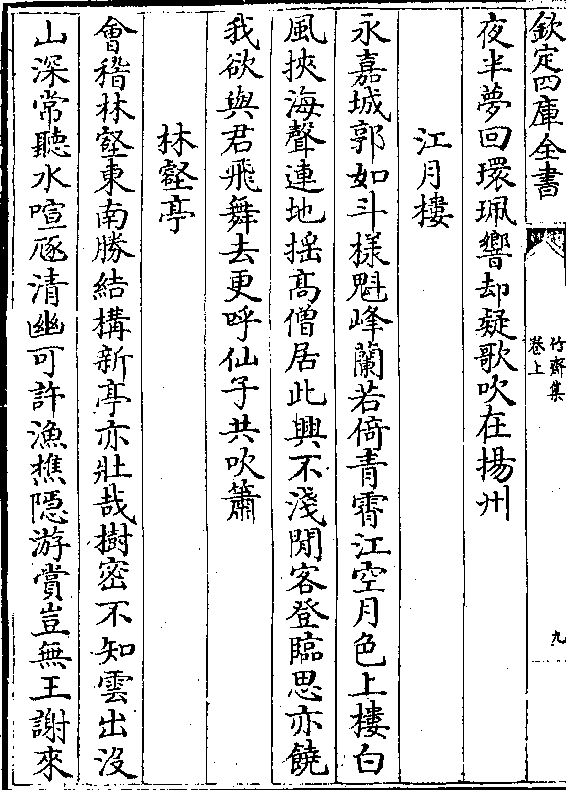 欽定四庫全書
竹齋集
卷上
九
夜半夢回環珮響却疑歌吹在揚州
江月樓
永嘉城郭如斗樣魁峰蘭若倚青霄江空月色上樓白
風挾海聲連地揺高僧居此興不淺閒客登臨思亦饒
我欲與君飛舞去更呼仙子共吹簫
林壑亭
會稽林壑東南勝結構新亭亦壯哉樹密不知雲出沒
山深常聽水喧豗清幽可許漁樵隠游賞豈無王謝來